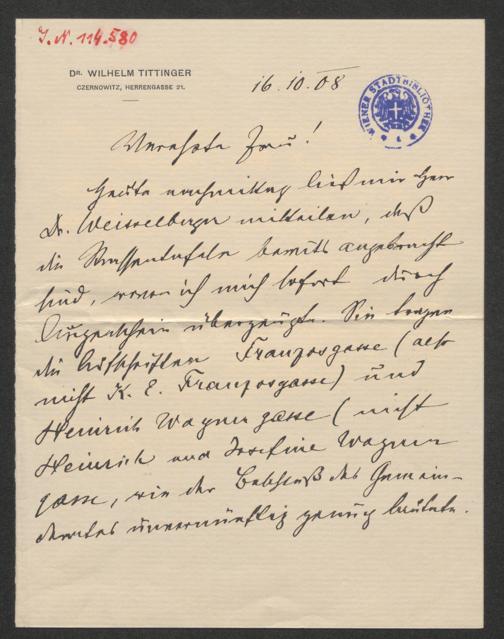 J. N. 114.580
DR. WILHELM TITTINGER
CZERNOWITZ, HERRENGASSE 21.
16.10.08
WIENER STADTBIBLIOTHEK
Verehrte Frau!
Heute nachmittag ließ mir Herr
Dr. Weisselberger mitteilen, daß
die Strassentafeln bereits angebracht
sind, wovon ich mich sofort durch
Augenschein überzeugte. Sie tragen
die Aufschriften Franzosgasse (also
nicht K. E. Franzosgasse) und
Heinrich Wagnergasse (nicht
Heinrich und Josefine Wagner
gasse, wie der Beschluß des Gemein-
derates unvernünftig genug lautete.